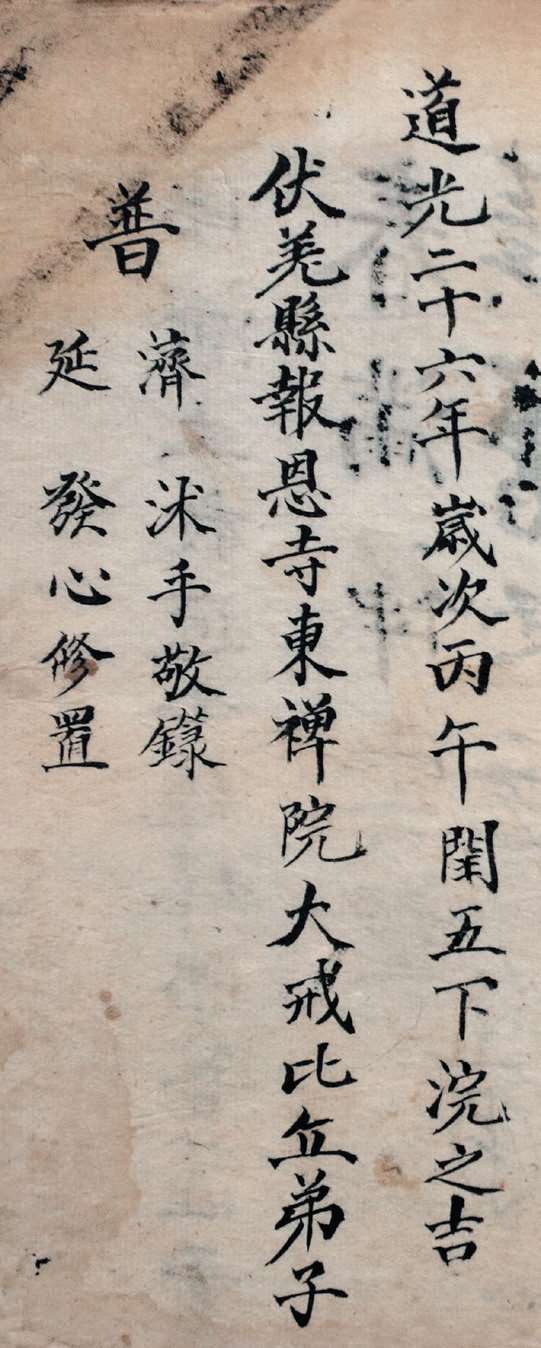 道光二十六年歲次丙午閏五下浣之吉
伏羌縣報恩寺東禪院大戒比丘弟子
普
濟 沐手敬錄
延 發心修置